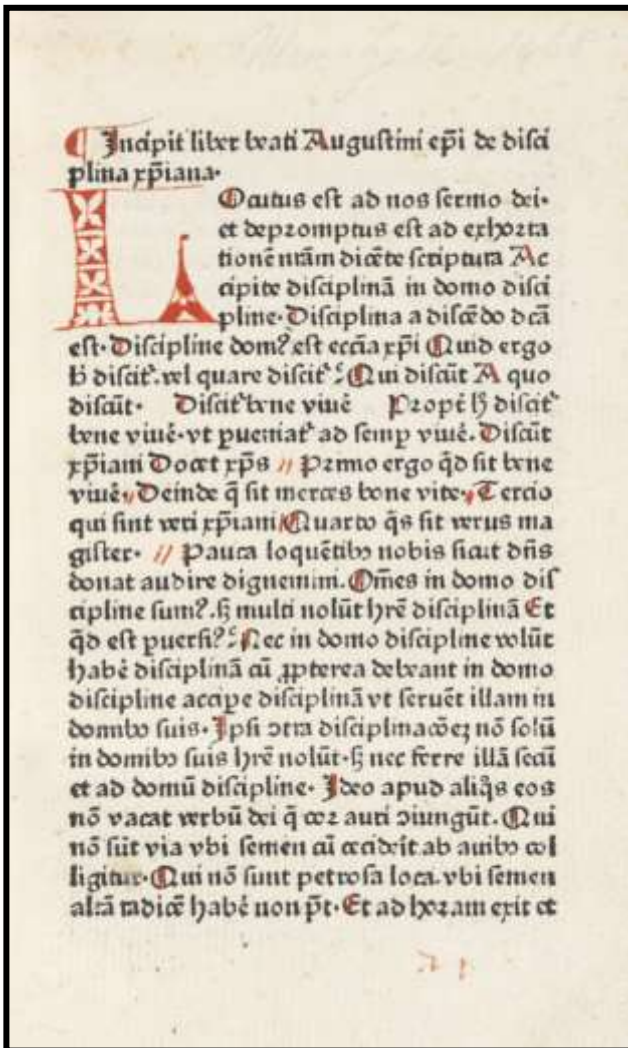 Incipit liber beati Augustini ep̄i de disci
plina xp̄iana·
LOcutus est ad nos sermo dei·
et depromptus est ad exhorta
tionē nr̄am dicēte scriptura Ac
cipite disciplinā in domo disci
pline· Disciplina a discēdo dcā
est· Discipline domꝰ est eccīa xp̄i Quid ergo
discit᷑. vel quare discit᷑ Qui discūt A quo
discūt· Discit᷑ bene viuē Propt̄ discit᷑
bene viuē· vt ꝑueniat᷑ ad semꝑ viuē. Discūt
xp̄iani Docet xp̄s // Primo ergo qd̄ sit bene
viuē. Deinde q̄ sit merces bone vite· Tercio
qui sint veri xp̄iani Quarto q̄s sit verus ma
gister· // Pauca loquētibꝫ nobis sicut dn̄s
donat audire dignemini. Om̄es in domo dis
cipline sumꝰ. multi nolūt hr̄e disciplinā Et
qd̄ est ꝑuersiꝰ Nec in domo discipline volūt
habē disciplinā cū ꝓpterea debeant in domo
discipline accipe disciplinā vt seruēt illam in
domibꝫ suis· Ipsi ↄtra disciplina nō solū
in domibꝫ suis hr̄e nolūt· nec ferre illā secū
et ad domū discipline· Ideo apud aliq̄s eos
nō vacat verbū dei q̄ coꝛ auri ↄiungūt. Qui
nō sūt via vbi semen cū cecid̄it ab auibꝫ col
ligitur· Qui nō sunt petrosa loca. vbi semen
altā radicē habē non p̄t· Et ad horam exit et